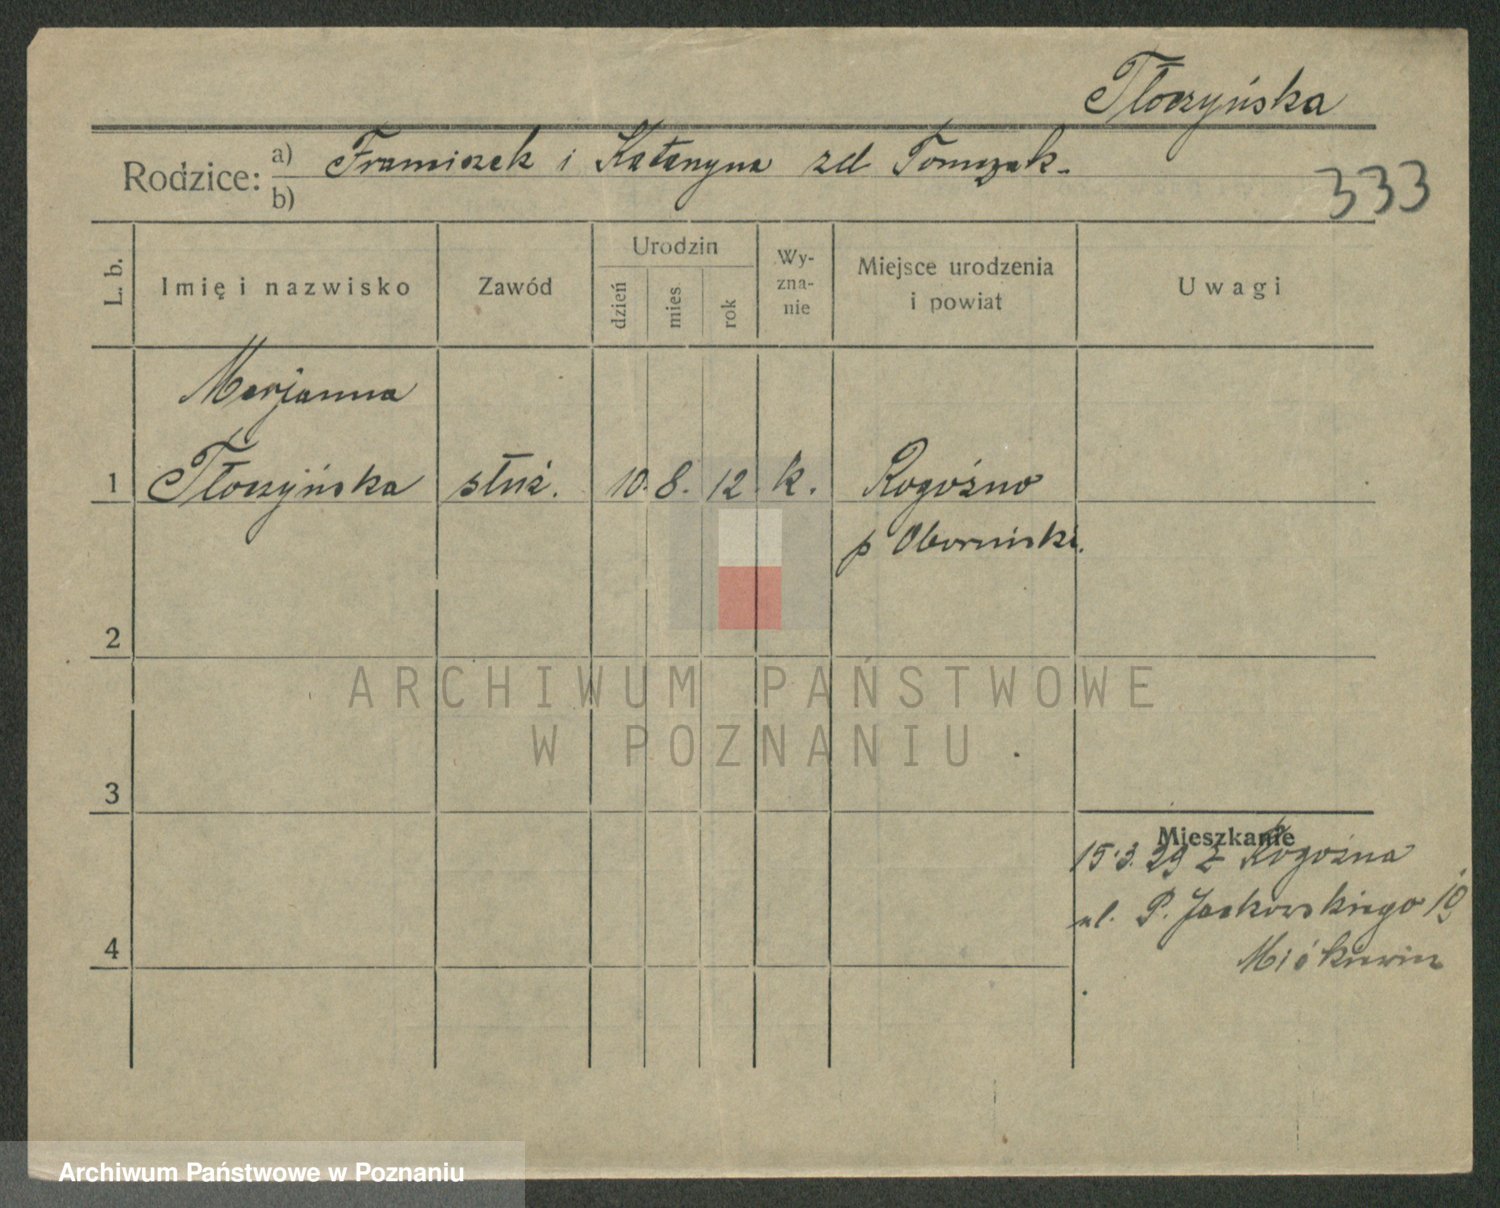 Tłoczyńska
Rodzice: a) Franciszek i Katarzyna zd Tomczak.
b)
333
L. b.
Imię i nazwisko
Zawód
Urodzin
dzień
mies
rok
Wy-
zna-
nie
Miejsce urodzenia
i powiat
Uwagi
Marjanna
1 Tłoczyńska służ. 10. 8. 12. k. Rogoźno
p Obornicki.
2
ARCHIWUM PAŃSTWOWE
W POZNANIU
3
Mieszkanie
15.3.29 z Rogoźna
ul. P. Jackowskiego 19
4
Archiwum Państwowe w Poznaniu